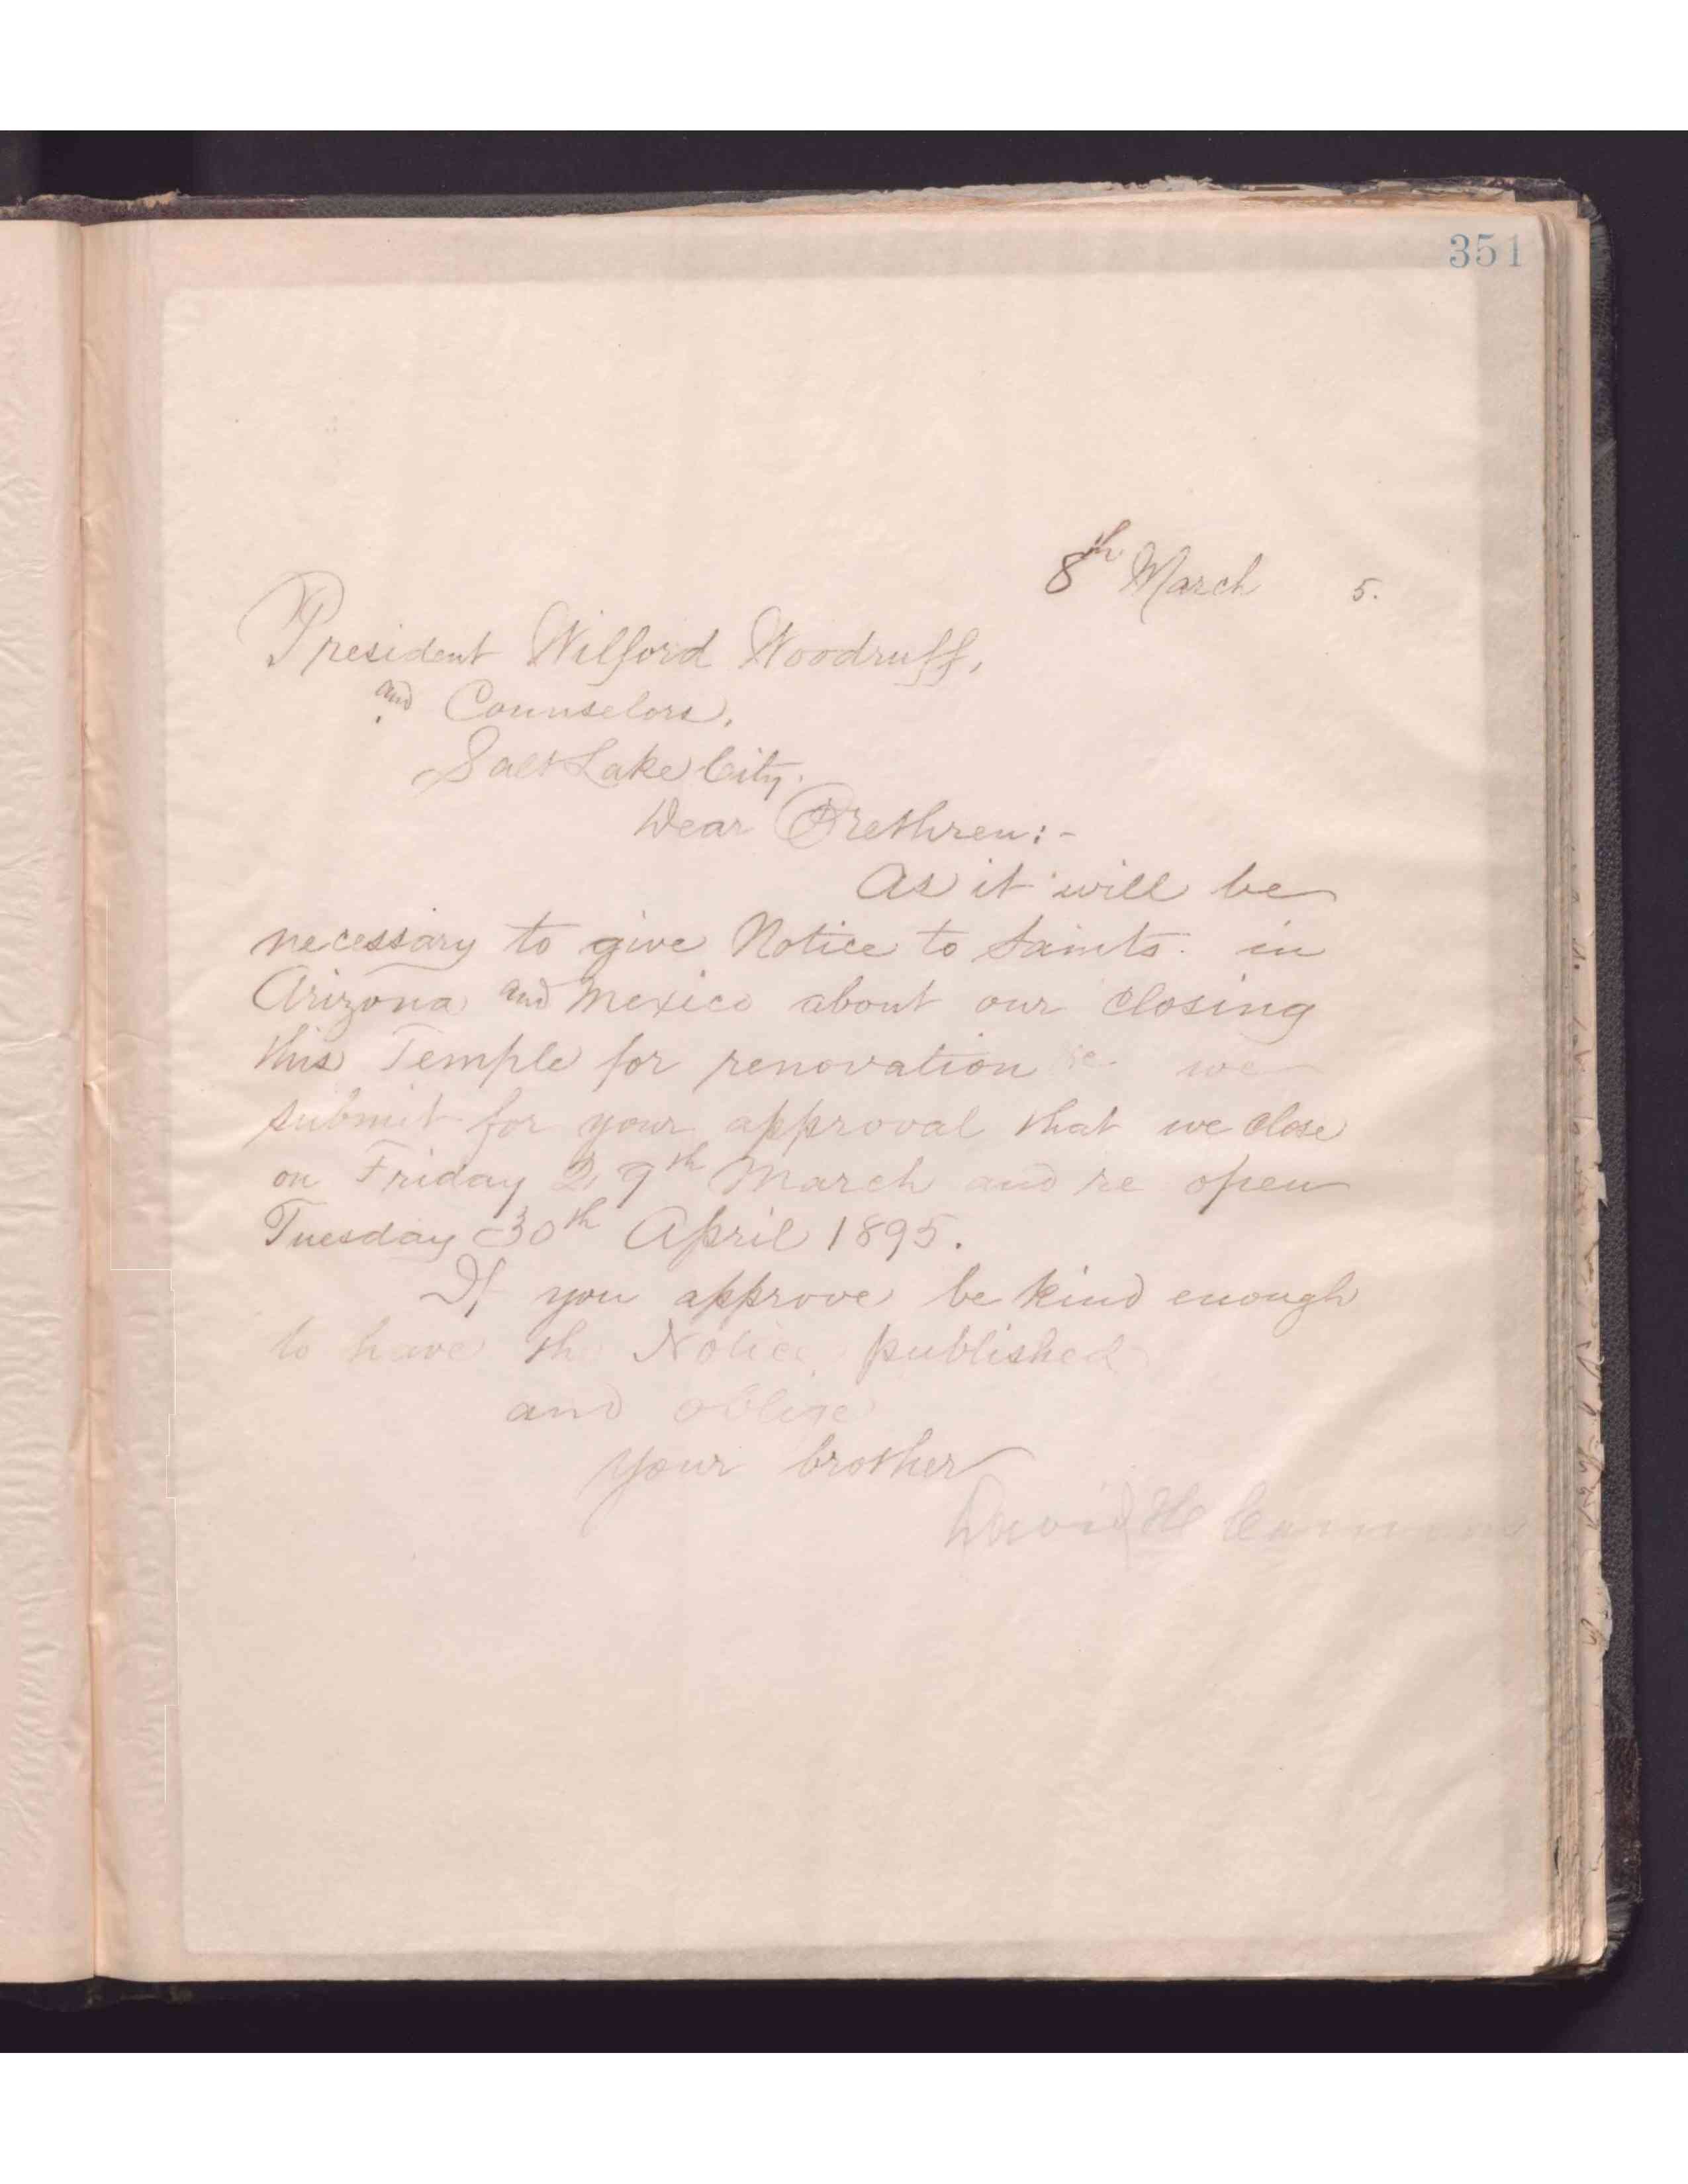 351
8th March 5.
President Wilford Woodruff,
and Counselors,
Salt Lake City.
Dear Brethren:-
As it will be
necessary to give Notice to Saints in
Arizona and Mexico about our closing
this Temple for renovation &c. we
submit for your approval that we close
on Friday 29th March and re open
Tuesday 30th April 1895.
If you approve be kind enough
to have the Notice published
and oblige
your brother
David H Cannon